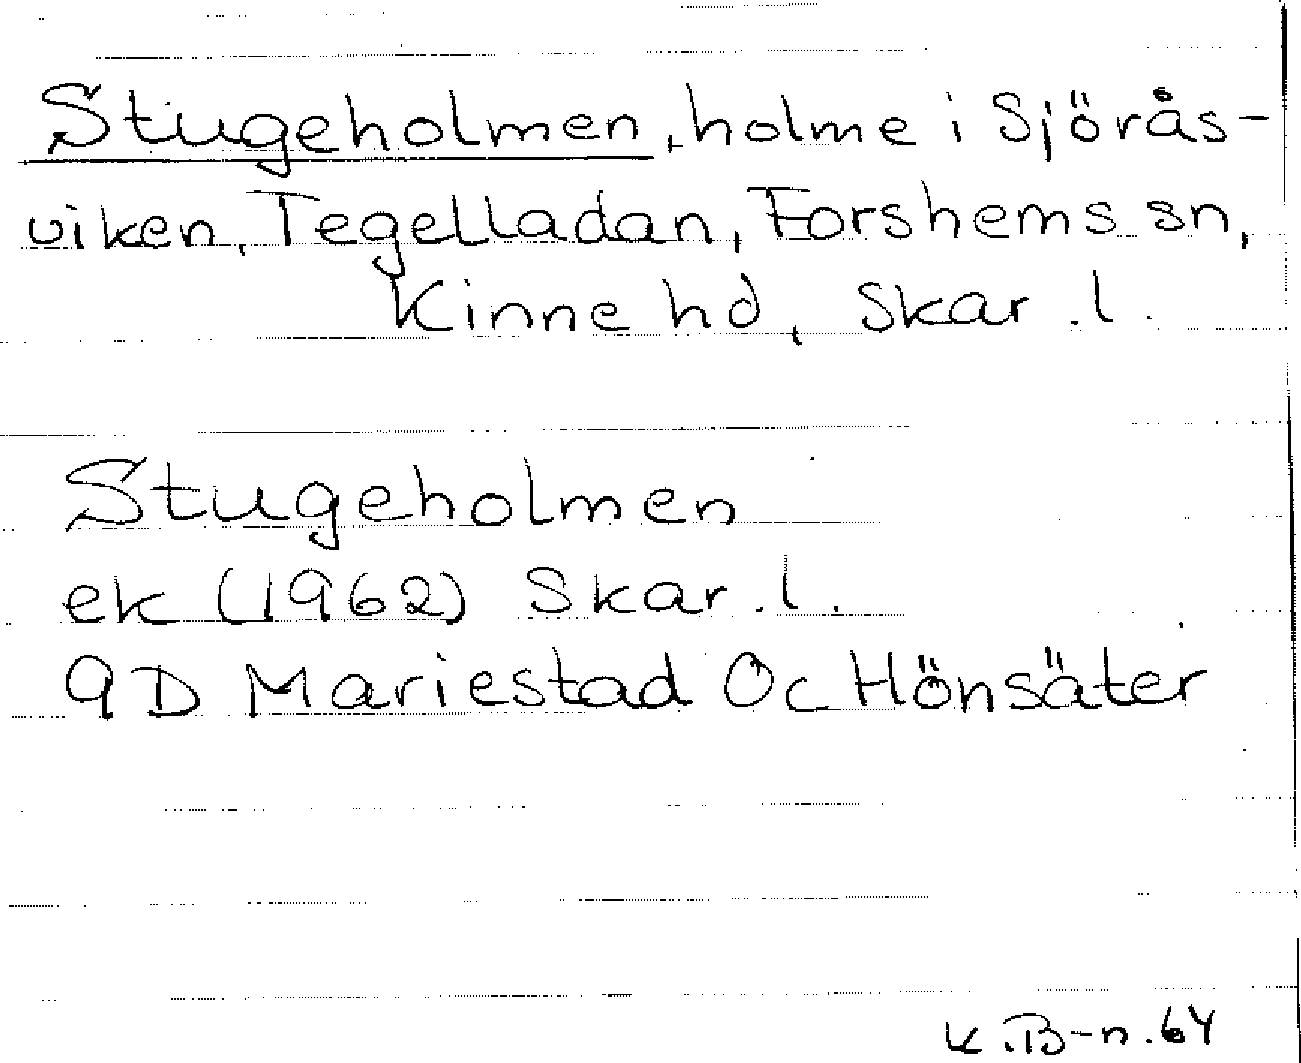 Stugeholmen, holme i Sjörås-
viken, Tegelladan, Forshems sn,
Kinne hd, Skar. l.
Stugeholmen
ek (1962) Skar. l.
9D Mariestad 0c Hönsäter
K.B-n. 64